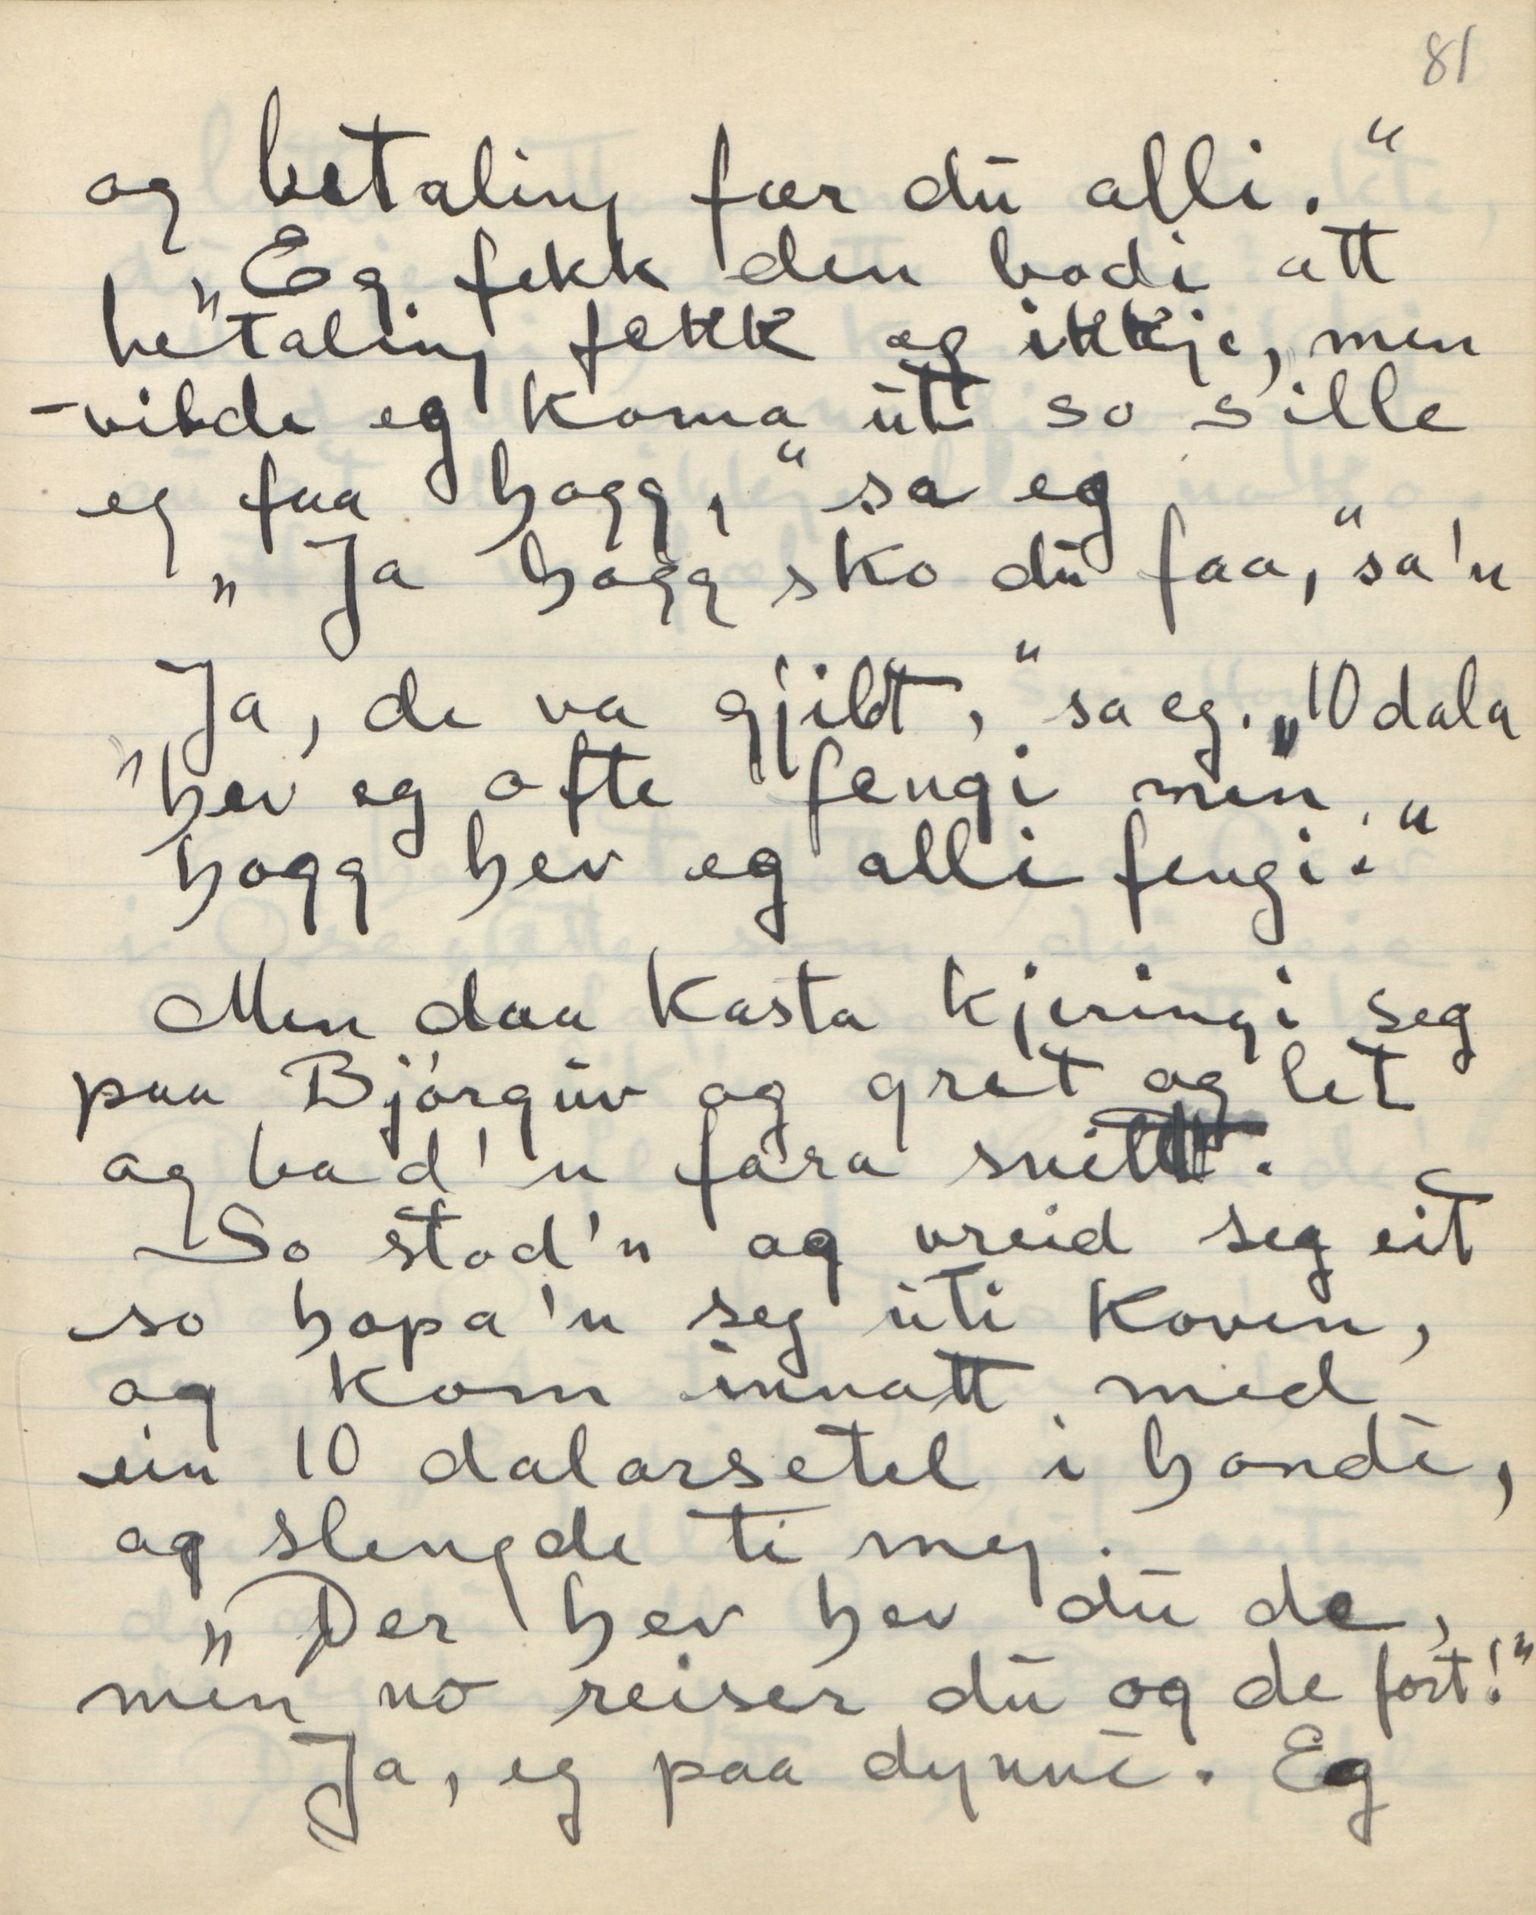 81
og betaling fær du alli."
"Eg fekk den bodi att
betaling fekk eg ikkje, men
vilde eg koma uti so sille
eg faa hogg," sa eg
"Ja hogg sko du faa," sa'n
"Ja, de va gjildt," sa eg. "10 dala
hev eg ofte fengi men
hogg hev eg alli fengi."
Men daa kasta kjeringi seg
paa Bjørguv og gret og let
og bad'n fara snilt.
So stod'n og vreid seg eit
so hopa'n seg uti koven,
og kom innatt med
ein 10 dalarsetel i hondi,
og slengde ti meg.
"Der hev hev du de,
men no reiser du og de fort!"
Ja, eg paa dynni. Eg